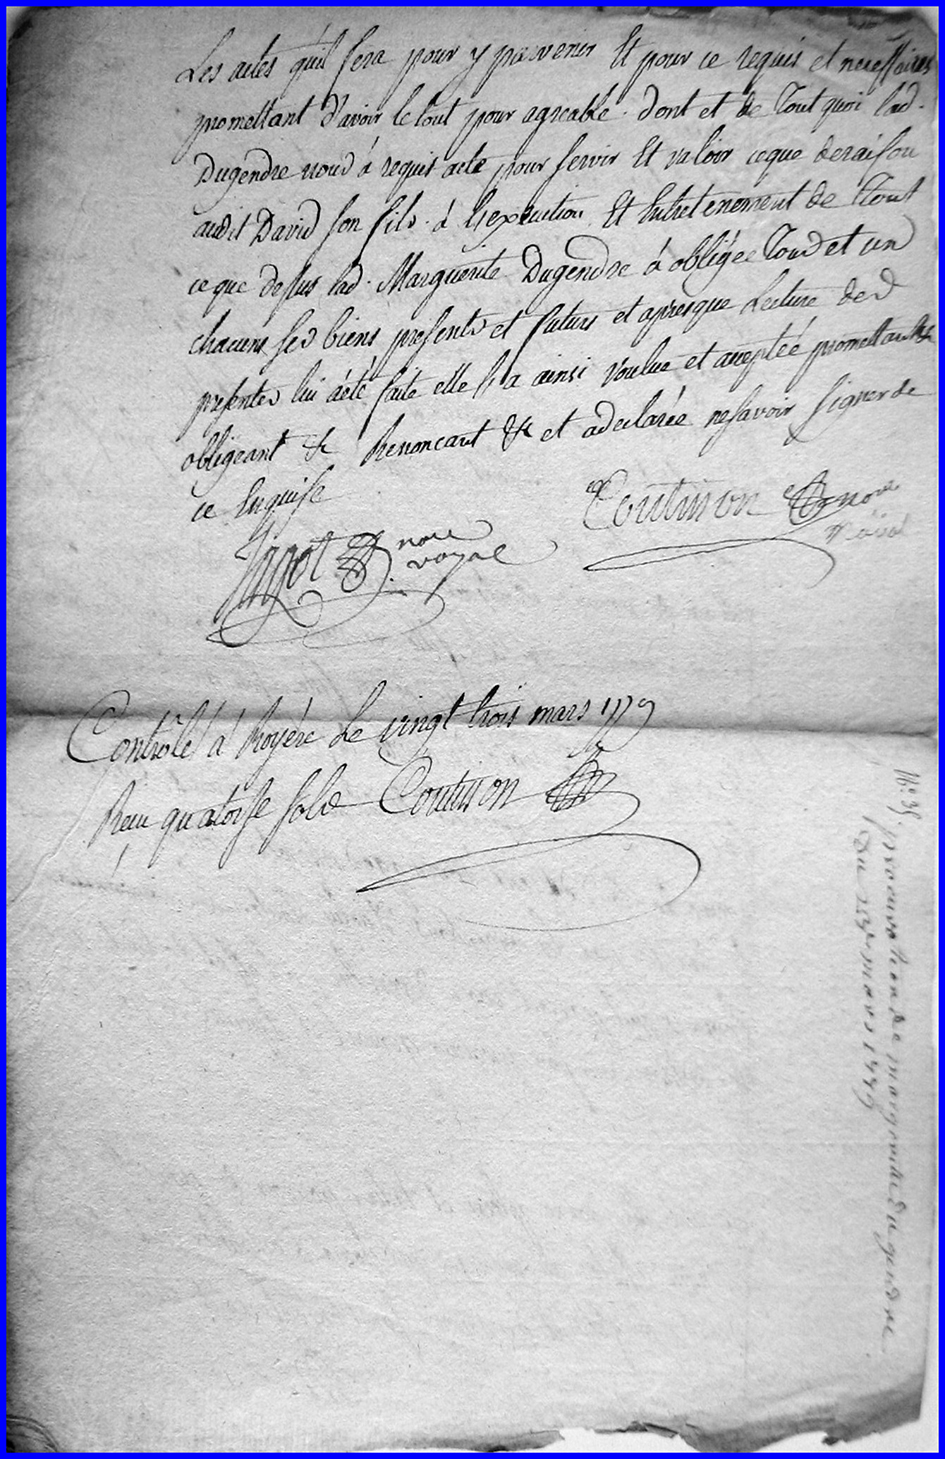 Les actes qu'il sera pour y parvenir Et pour ce requis et necessaires
promettant d'avoir le tout pour agreable. dont et de Tout quoi lad.
Dugendre nous á requis acte pour servir Et valoir ceque deraison
audit David son fils. á L'execution Et Entretenement de Tout
ceque dessus lad. Marguerite Dugendre á obligée Tous et un
chacuns ses biens presents et futurs et apresque Lecture des
presentes lui áété faite elle l'a ainsi voulue et acceptée promettant &
obligeant & Renoncant & et adeclarée nesavoir signer de
ce Enquise
Coutisson nore
royal
Jagot nore
royal
Contrôlé á Royére Le vingt trois mars 1779
Reçu quatorse sols Coutisson
procuration de marguerite Dugendre
Du mars 1779